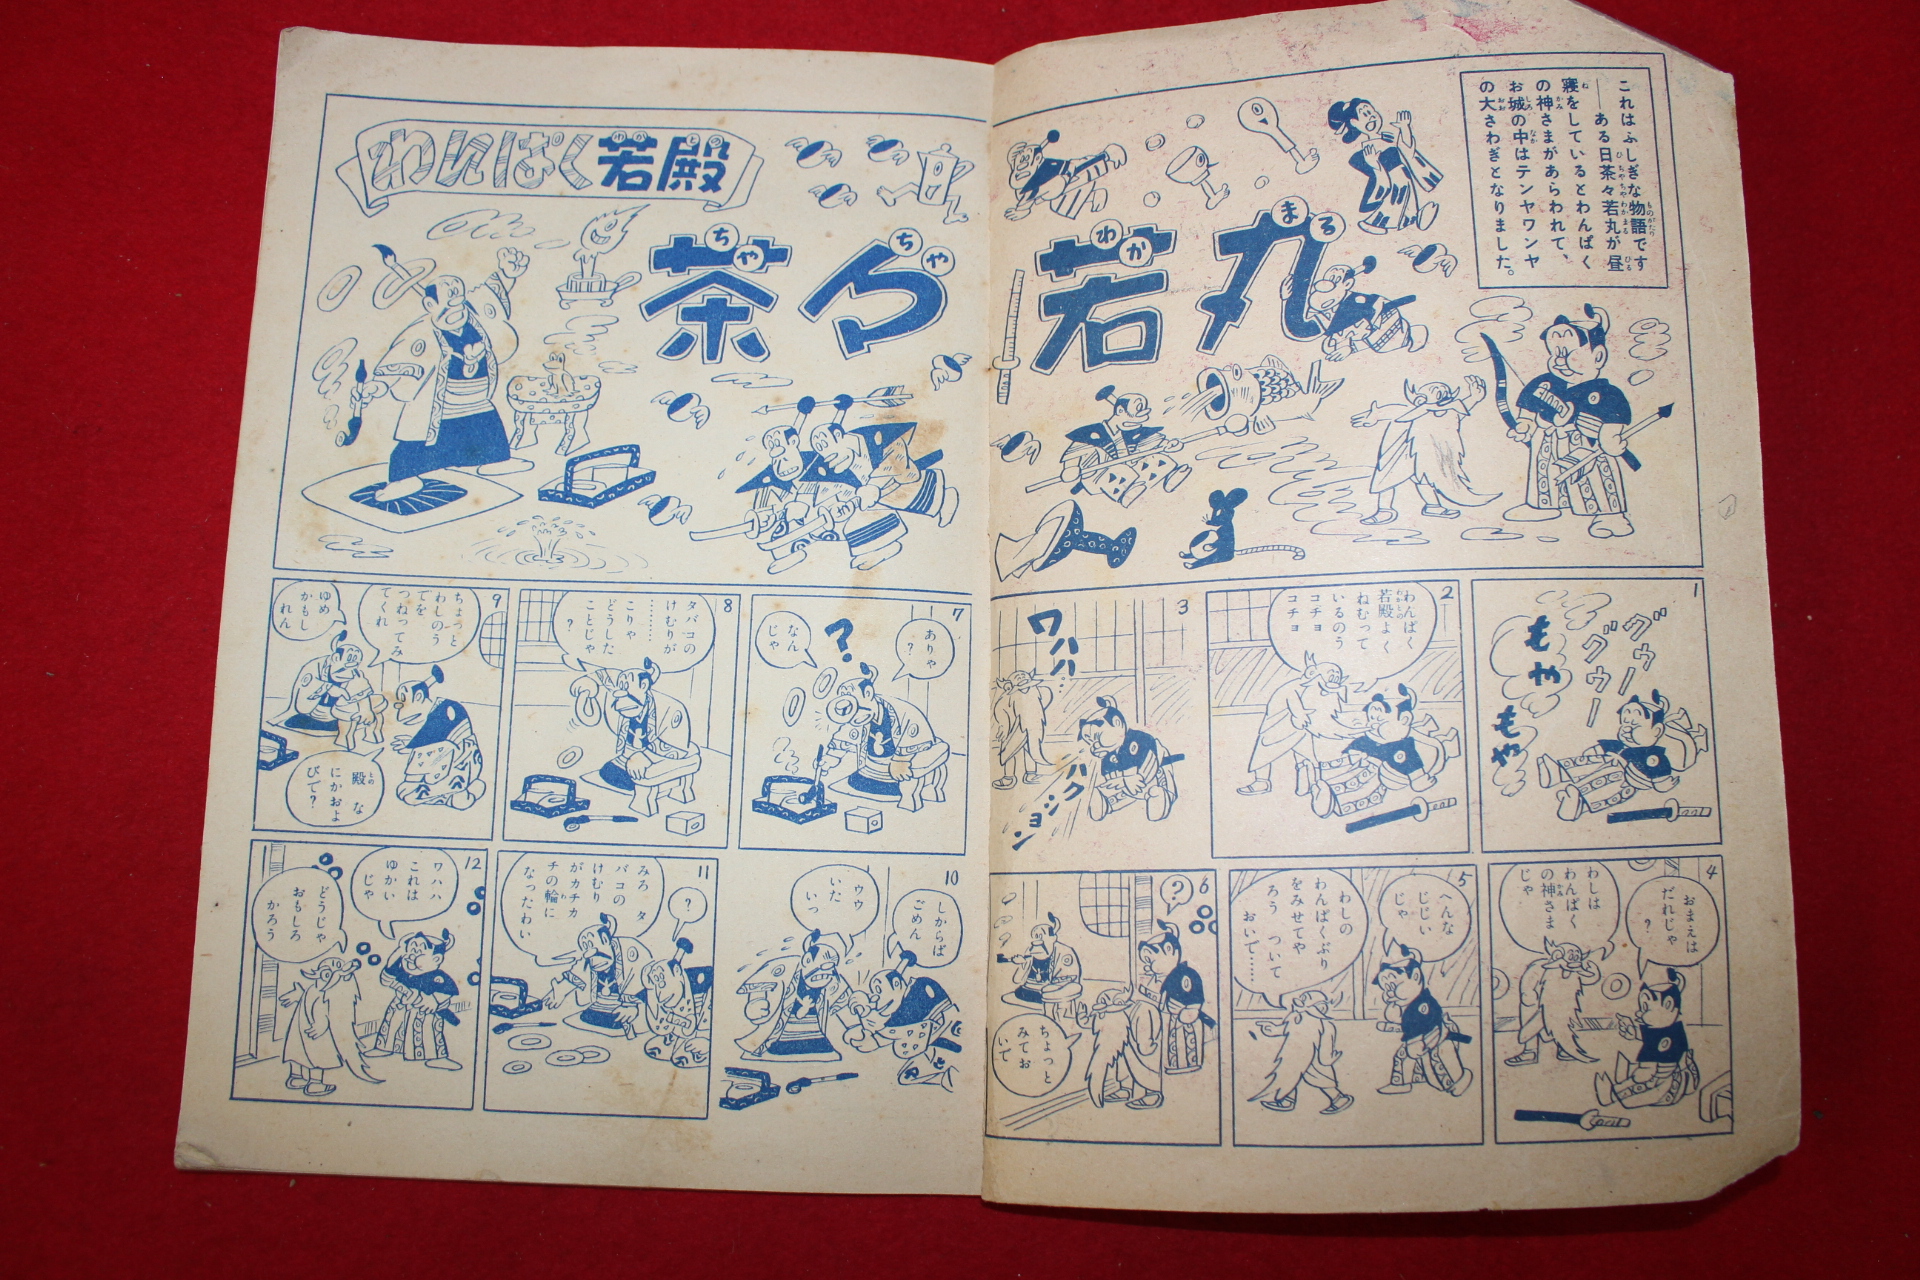 わんぱく若殿
茶々若丸
ちゃちゃわかまる
これはふしぎな物語です
――ある日茶々若丸が昼
寝をしているとわんぱく
の神さまがあらわれて、
お城の中はテンヤワンヤ
の大さわぎとなりました。
1
グゥーグゥー
もやもや
2
わんぱく
若殿よく
ねむって
いるのう
コチョ
コチョ
3
ワハハ…
ハクション
4
おまえは
だれじゃ
?
わしは
わんぱく
の神さま
じゃ
5
へんな
じじい
じゃ
わしの
わんぱくぶり
をみせてや
ろう ついて
おいで……
6
?
ちょっと
みてお
いて
7
ありゃ
?
?
なん
じゃ
8
タバコの
けむりが
………
こりゃ
どうした
ことじゃ
?
9
ちょっと
わしのう
でを
つねってみ
てくれ
ゆめ
かもし
れん
殿 な
にかおよ
びで?
10
しからば
ごめん
ウウ
いた
いっ
11
?
みろ タ
バコの
けむり
がカチカ
チの輪に
なったわい
12
ワハハ
これは
ゆかい
じゃ
どうじゃ
おもしろ
かろう